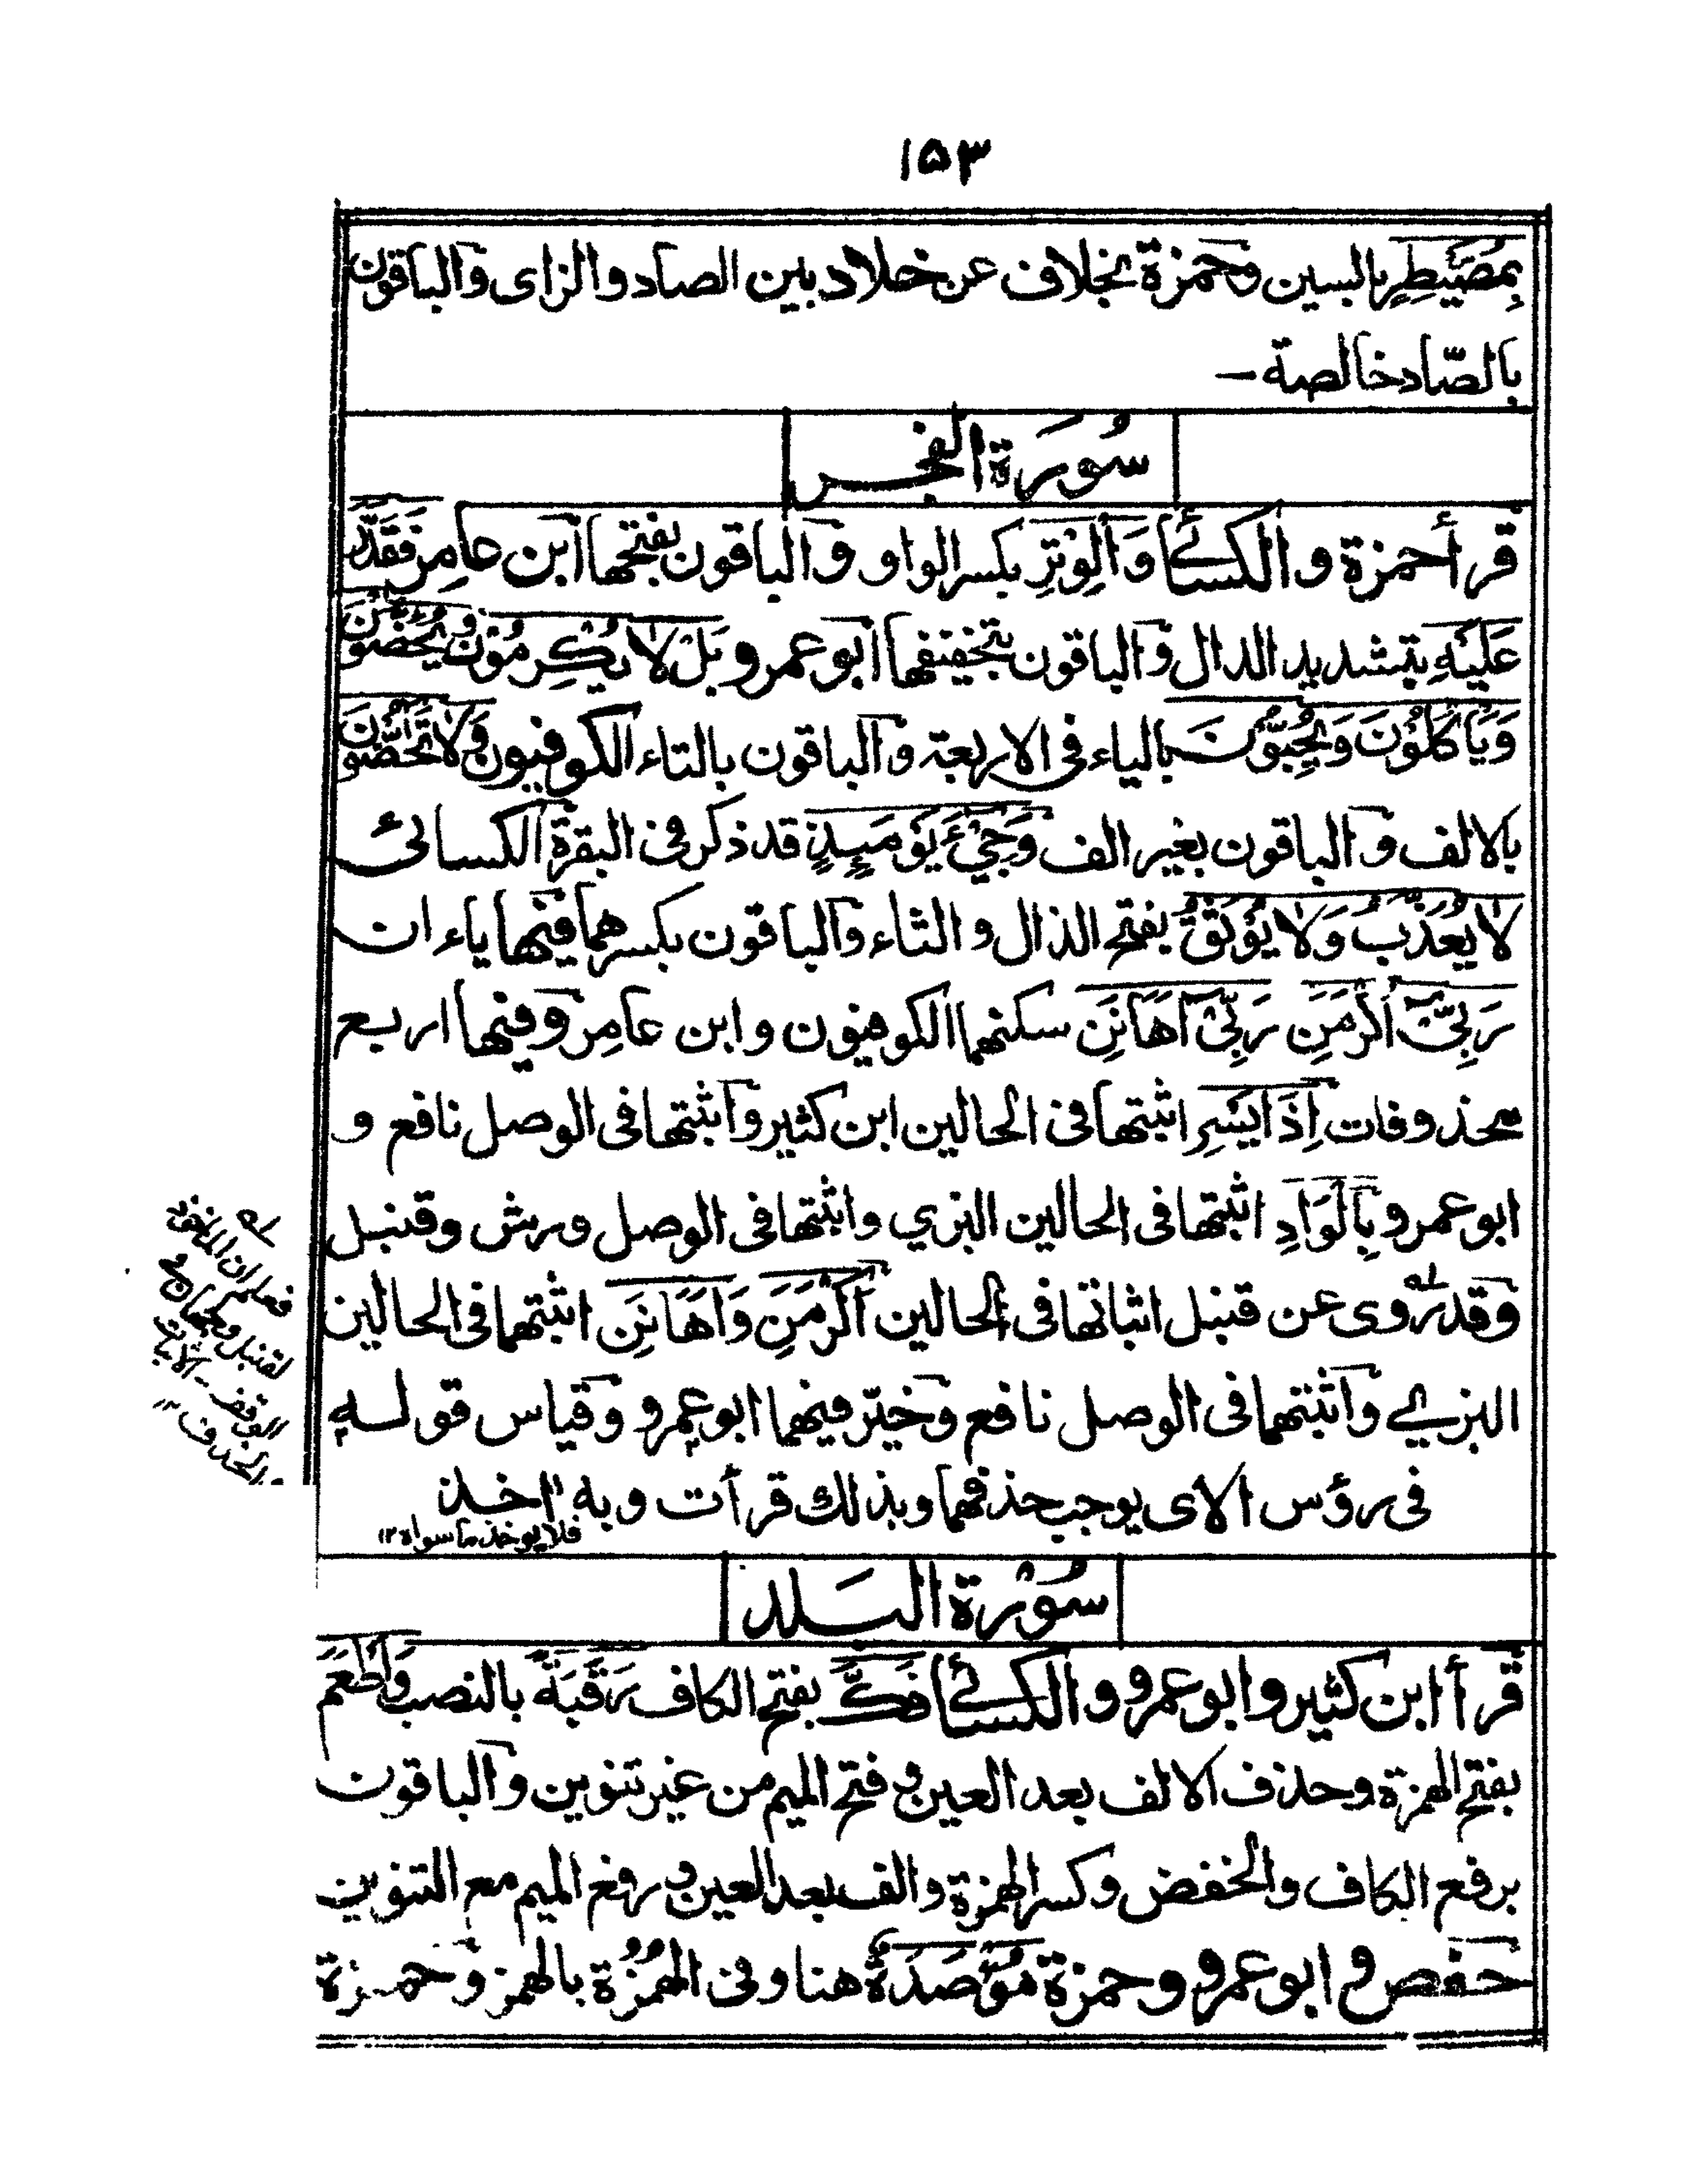 ١٥٣
بِمُصَيْطِرٍ بالسين وحمزة بخلاف عن خلاد بين الصاد والزاى والباقون
بالصّاد خالصة –
سُورَة الفجر
قرأ حمزة والكسائے وَالْوِتْرِ بكسر الواو والباقون بفتحها ابن عامر فَقَدَّرَ
عَلَيْهِ بتشديد الدال والباقون بتخفيفها ابو عمرو بَلْ لَا يُكْرِمُوْنَ وَيَحُضُّوْنَ
وَيَاكُلُوْنَ وَيُحِبُّوْنَ بالياء فى الاربعة والباقون بالتاء الكوفيون وَلَا تَحَاضُّوْنَ
بالالف والباقون بغير الف وَجِيْءَ يَوْمَئِذٍ قد ذكر فى البقرة الكسائى
لَا يُعَذَّبُ وَلَا يُوْثَقُ بفتح الذال والثاء والباقون بكسرهما فيها ياءات
رَبِّىْٓ اَكْرَمَنِ رَبِّىْٓ اَهَانَنِ سكنهما الكوفيون وابن عامر وفيها اربع
محذوفات اِذَا يَسْرِ اثبتها فى الحالين ابن كثير واثبتها فى الوصل نافع و
ابو عمرو بِالْوَادِ اثبتها فى الحالين البزي واثبتها فى الوصل ورش وقنبل
وقد روى عن قنبل اثباتها فى الحالين اَكْرَمَنِ وَاَهَانَنِ اثبتهما فى الحالين
البزي واثبتهما فى الوصل نافع وخيّر فيهما ابو عمرو وقياس قوله
فى رؤس الاى يوجب حذفهما وبذلك قرأت وبه اٰخذ
فلا يوخذ ما سواه ١٢
سُوْرة البَلد
قرأ ابن كثير وابو عمرو والكسائے فَكَّ بفتح الكاف رَقَبَةً بالنصب وَاَطْعَمَ
بفتح الهمزة وحذف الالف بعد العين وفتح الميم من غير تنوين والباقون
برفع الكاف والخفض وكسر الهمزة والف بعد العين ورفع الميم مع التنوين
حفص وابو عمرو وحمزة مُؤْصَدَةٌ هنا وفى الهُمَزَة بالهمز وحمزة
فعلم ان الماخوذ
لقنبل وجهان فى
الوقف - الاثبات
والحذف ١٢